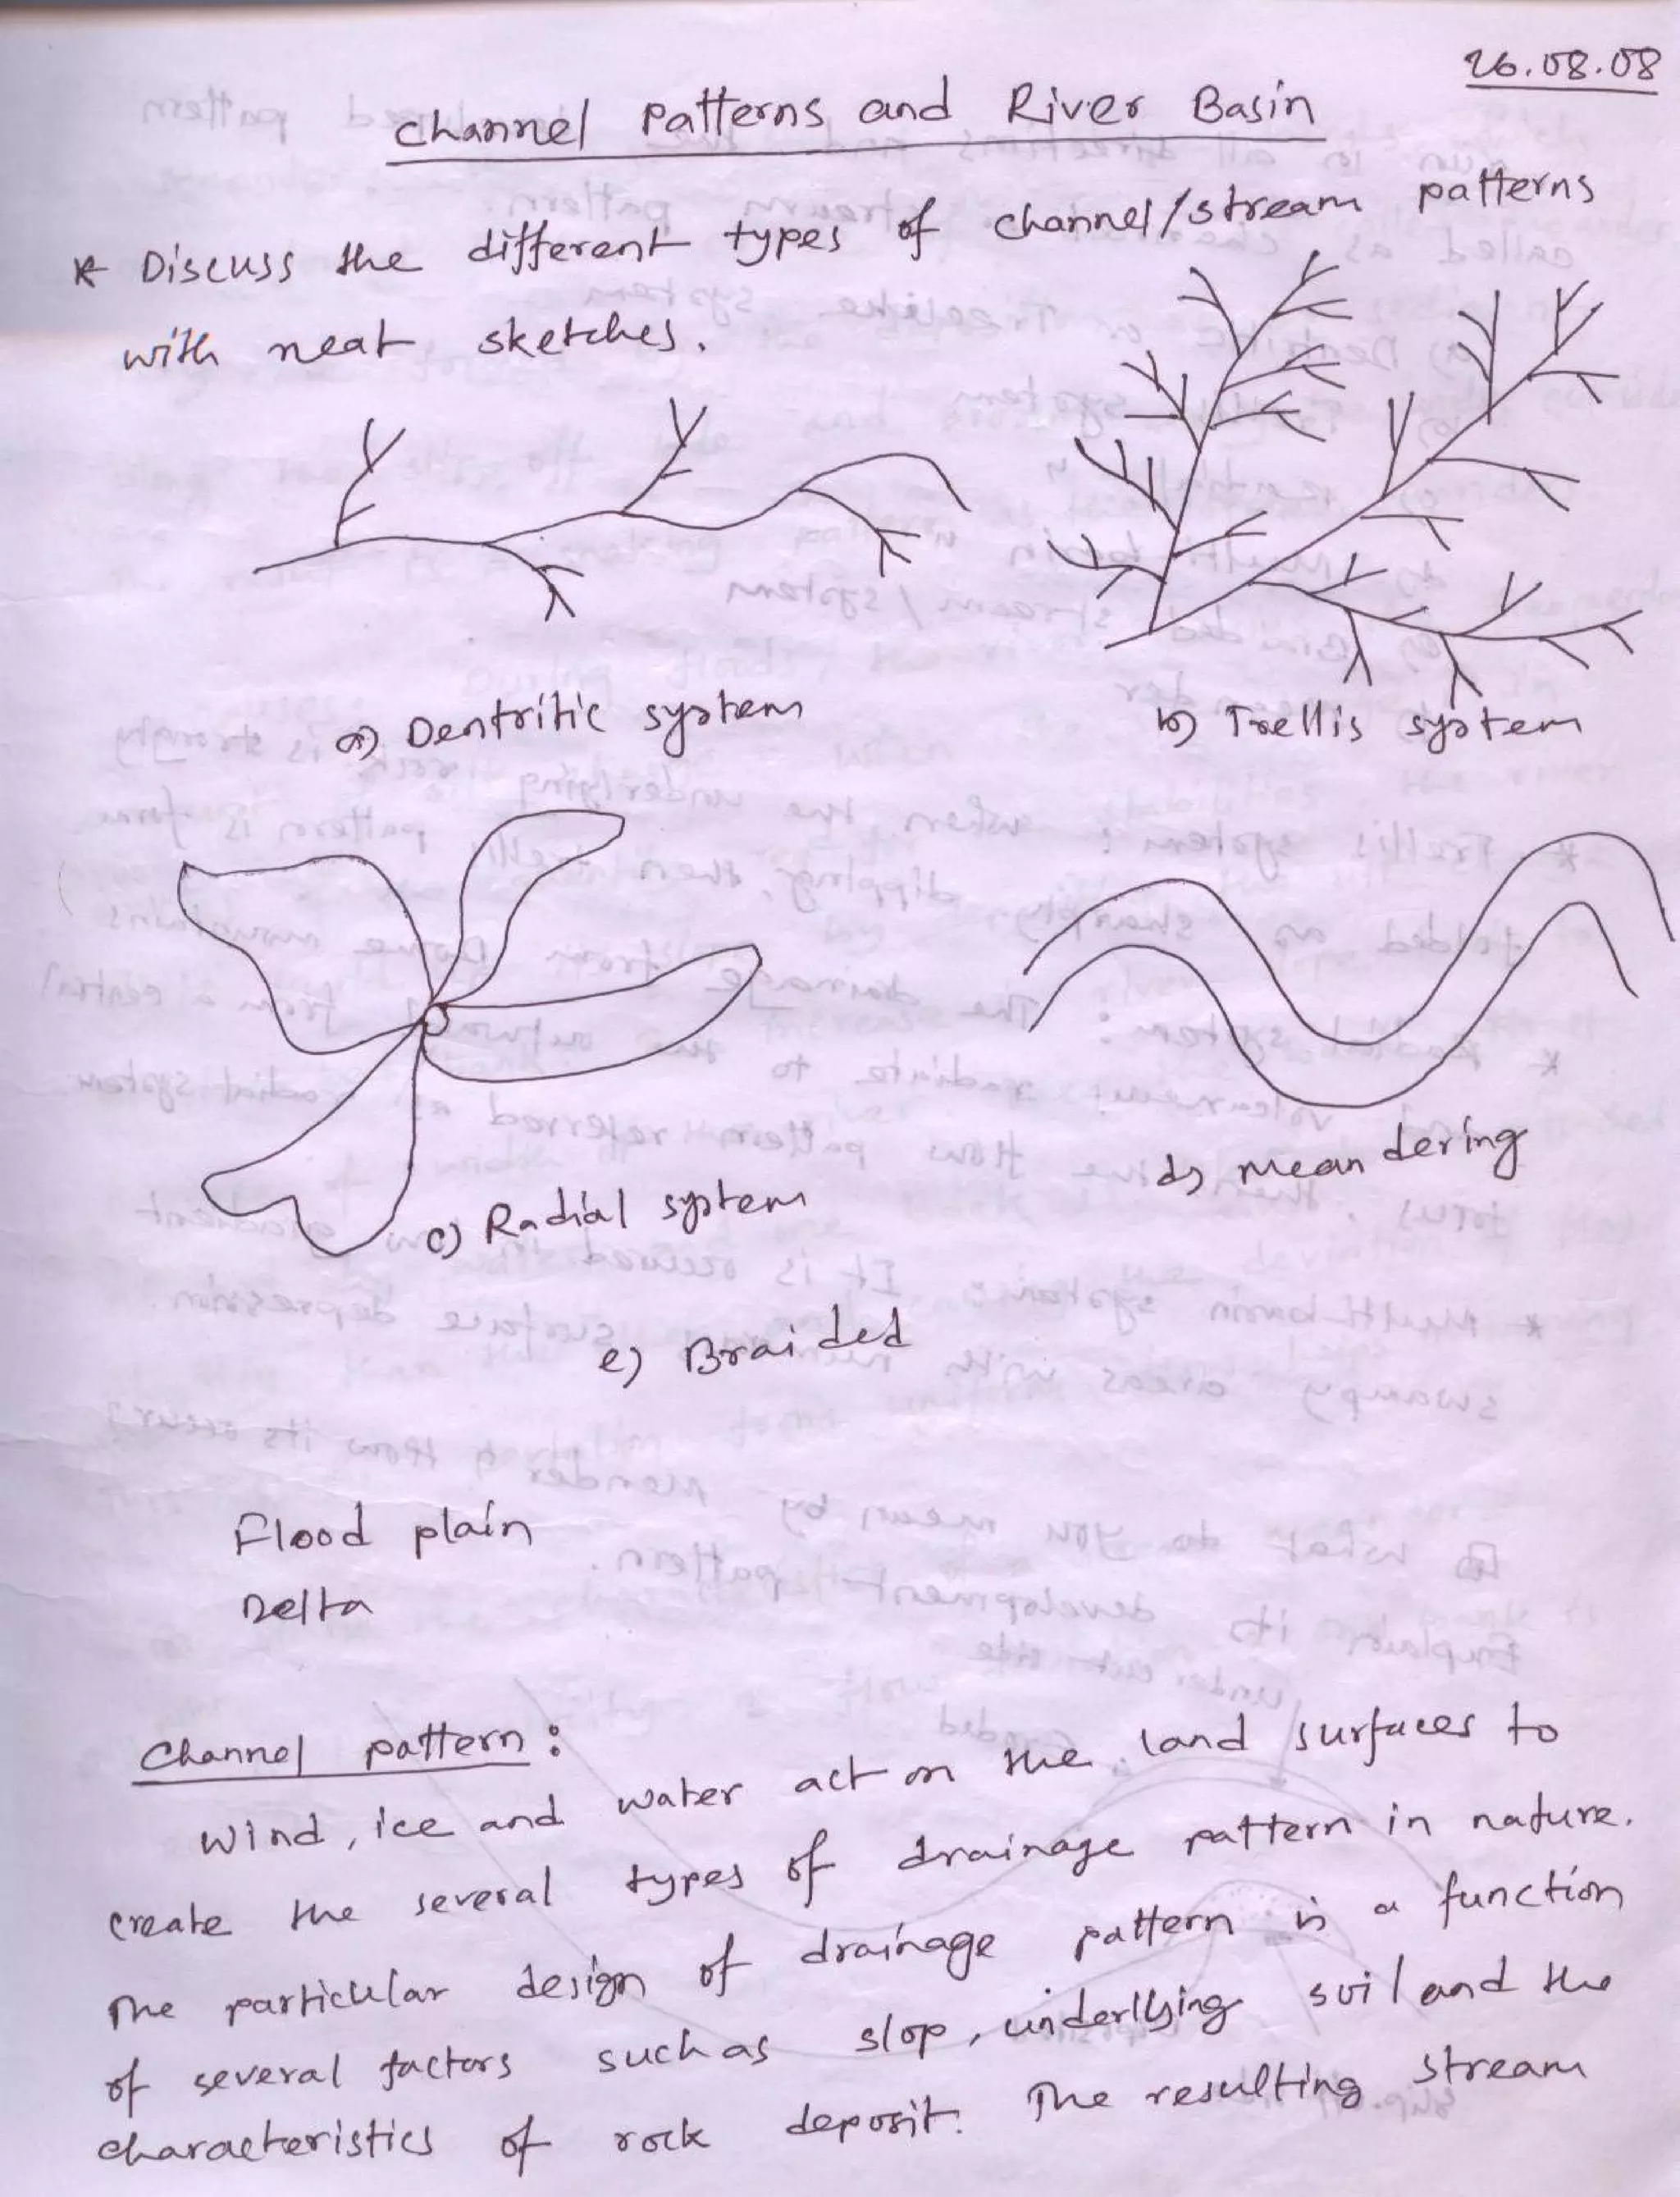 26.08.08
Channel Patterns and River Basin
* Discuss the different types of channel/stream patterns
with neat sketches.
a) Dentritic system
b) Trellis system
c) Radial system
d) Meandering
e) Braided
Flood plain
Delta
Channel pattern:
Wind, ice and water act on the land surfaces to
create the several types of drainage pattern in nature.
The particular design of drainage pattern is a function
of several factors such as slop, underllying soil and the
characteristics of rock deposit. The resulting stream